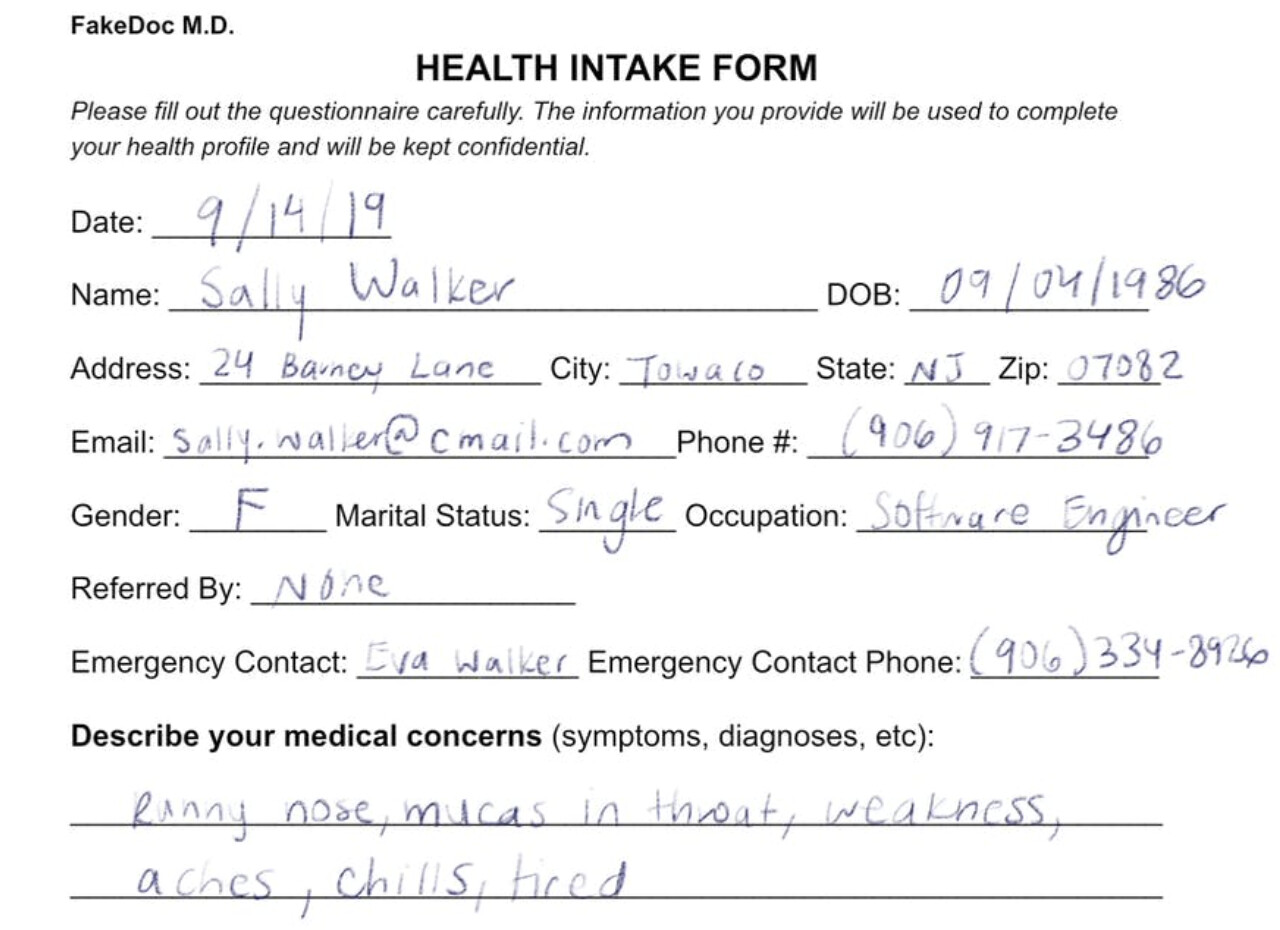 FakeDoc M.D.
HEALTH INTAKE FORM
Please fill out the questionnaire carefully. The information you provide will be used to complete
your health profile and will be kept confidential.
Date: 9/14/19
Name: Sally Walker DOB: 09/04/1986
Address: 24 Barney Lane City: Towaco State: NJ Zip: 07082
Email: Sally.walker@cmail.com Phone #: (906) 917-3486
Gender: F Marital Status: Single Occupation: Software Engineer
Referred By: None
Emergency Contact: Eva Walker Emergency Contact Phone: (906)334-8926
Describe your medical concerns (symptoms, diagnoses, etc):
Runny nose, mucas in throat, weakness,
aches, chills, tired